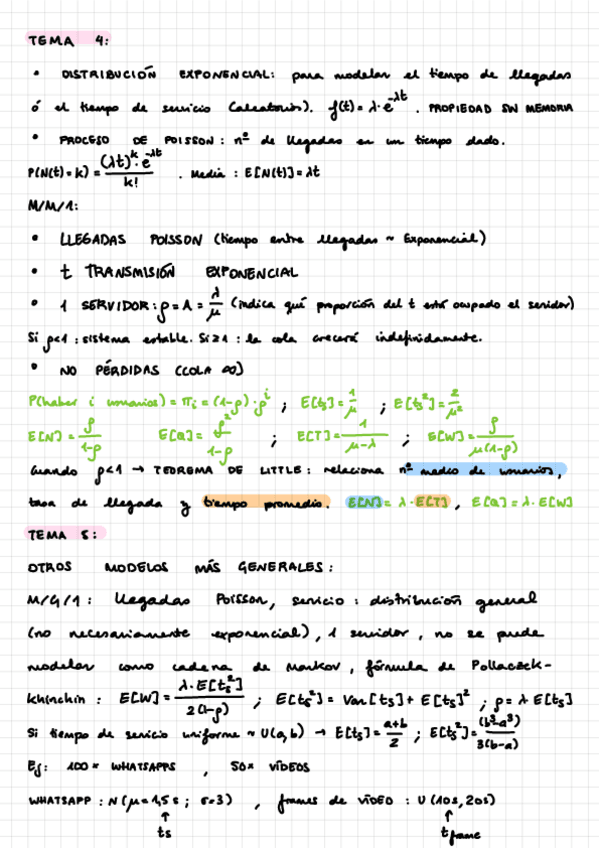 TEMA 4:
• DISTRIBUCIÓN EXPONENCIAL: para modelar el tiempo de llegadas
ó el tiempo de servicio (aleatorio). f(t) = λ·e^-λt . PROPIEDAD SIN MEMORIA
• PROCESO DE POISSON: nº de llegadas en un tiempo dado.
P(N(t)=k) = (λt)^k · e^-λt / k! . Media: E[N(t)] = λt
M/M/1:
• LLEGADAS POISSON (tiempo entre llegadas ~ Exponencial)
• t TRANSMISIÓN EXPONENCIAL
• 1 SERVIDOR: ρ = A = λ/μ (indica qué proporción del t está ocupado el servidor)
Si ρ<1: sistema estable. Si ≥1: la cola crecerá indefinidamente.
• NO PÉRDIDAS (COLA ∞)
P(haber i usuarios) = πi = (1-ρ)·ρ^i ; E[ts] = 1/μ ; E[ts²] = 2/μ²
E[N] = ρ/1-ρ E[Q] = ρ²/1-ρ ; E[T] = 1/μ-λ ; E[W] = ρ/μ(1-ρ)
Cuando ρ<1 → TEOREMA DE LITTLE: relaciona nº medio de usuarios,
tasa de llegada y tiempo promedio. E[N] = λ·E[T], E[Q] = λ·E[W]
TEMA 5:
OTROS MODELOS MÁS GENERALES:
M/G/1: Llegadas Poisson, servicio: distribución general
(no necesariamente exponencial), 1 servidor, no se puede
modelar como cadena de Markov, fórmula de Pollaczek-
khinchin: E[W] = λ·E[ts²]/2(1-ρ) ; E[ts²] = Var[ts] + E[ts]² ; ρ = λ E[ts]
Si tiempo de servicio uniforme ~ U(a,b) → E[ts] = a+b/2 ; E[ts²] = (b³-a³)/3(b-a)
Ej: 100 x WHATSAPPS , 50x VÍDEOS
WHATSAPP: N(μ=1,5s ; σ=3) , frames de VÍDEO: U(10s, 20s)
↑ ↑
ts tframe